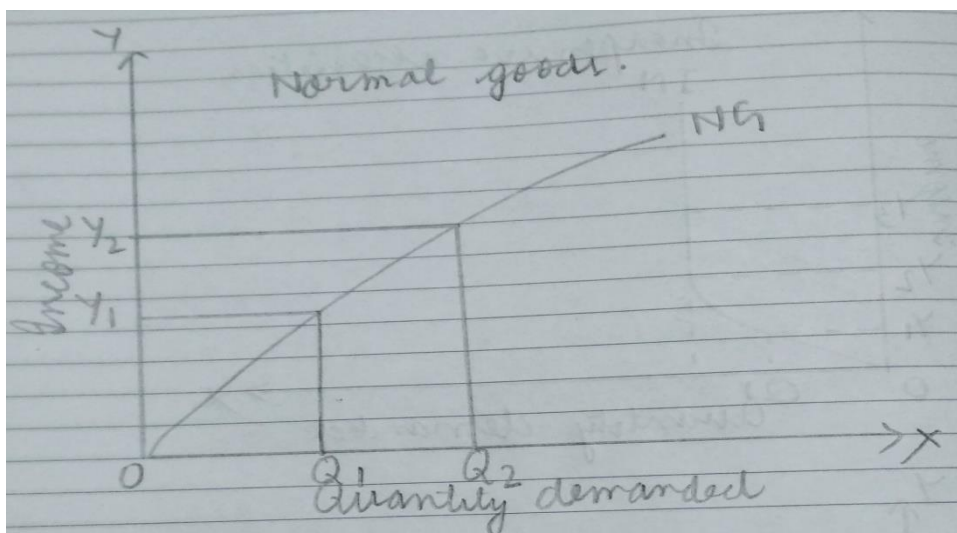 Y
Normal goods.
NG
Income
Y2
Y1
O
Q1
Q2
X
Quantity demanded